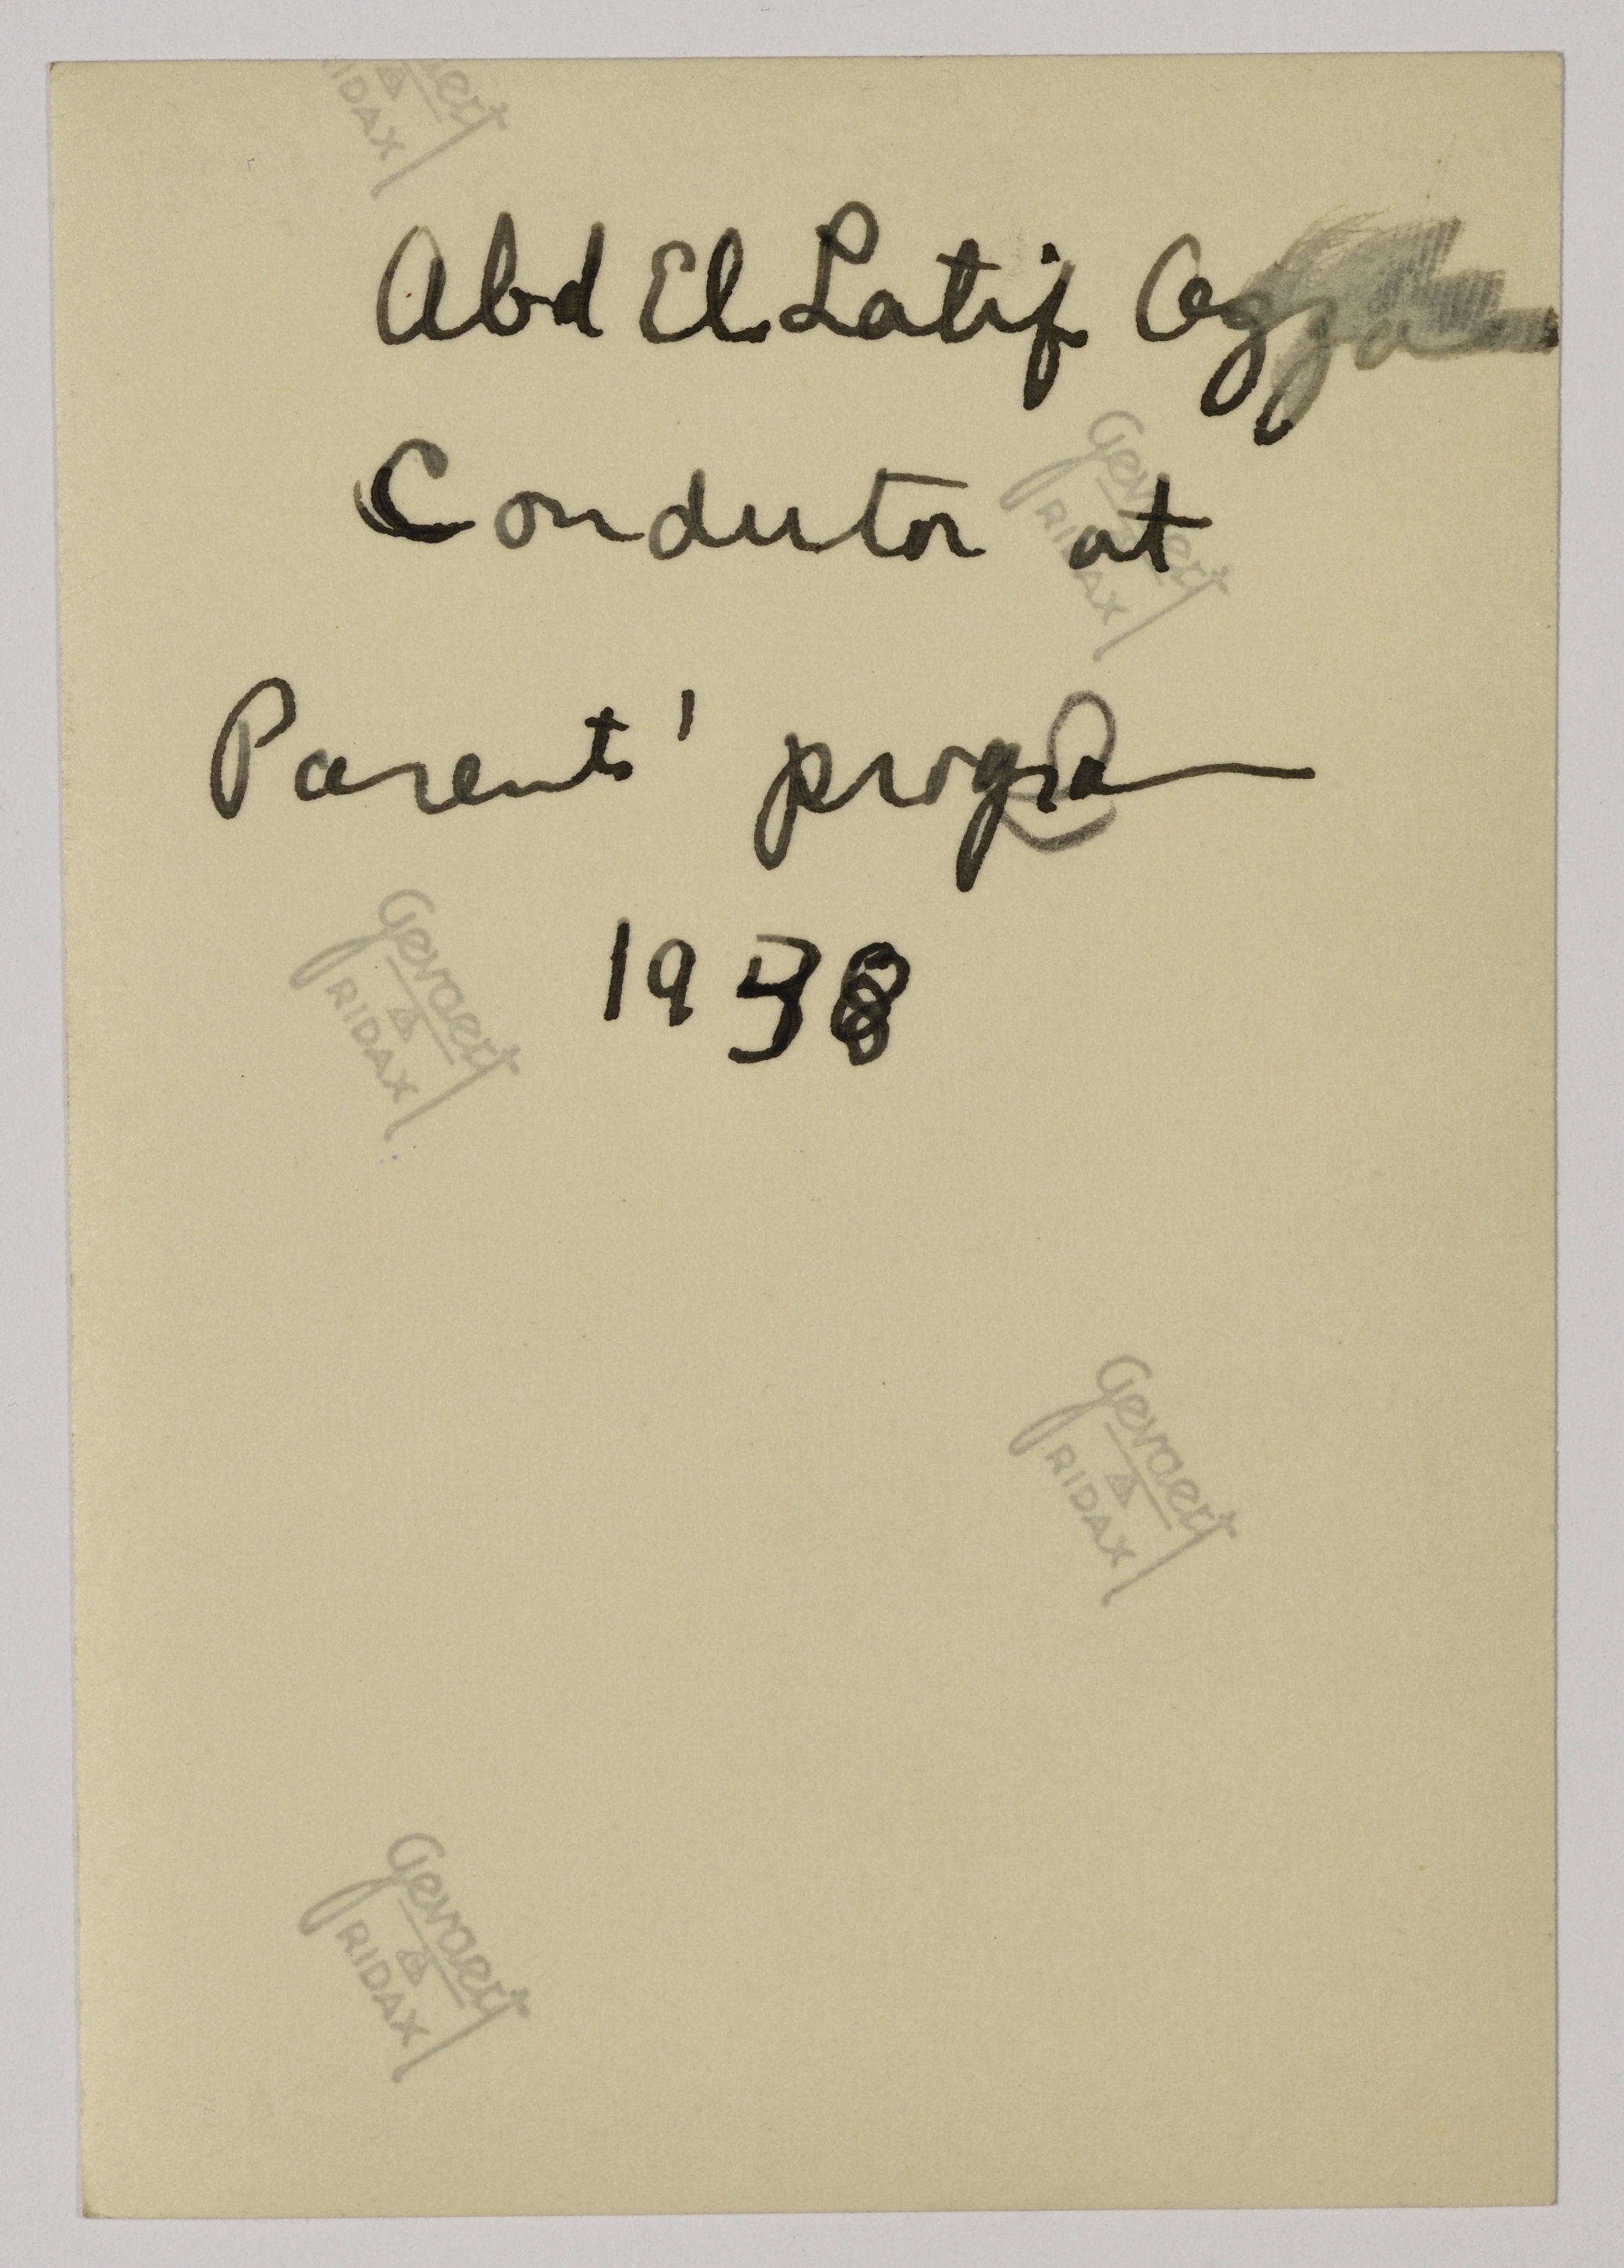 Gevaert RIDAX
Abd El Latif
Condutor at
Gevaert
RIDAX
Parents' program
1938
Gevaert
RIDAX
Gevaert
RIDAX
Gevaert
RIDAX